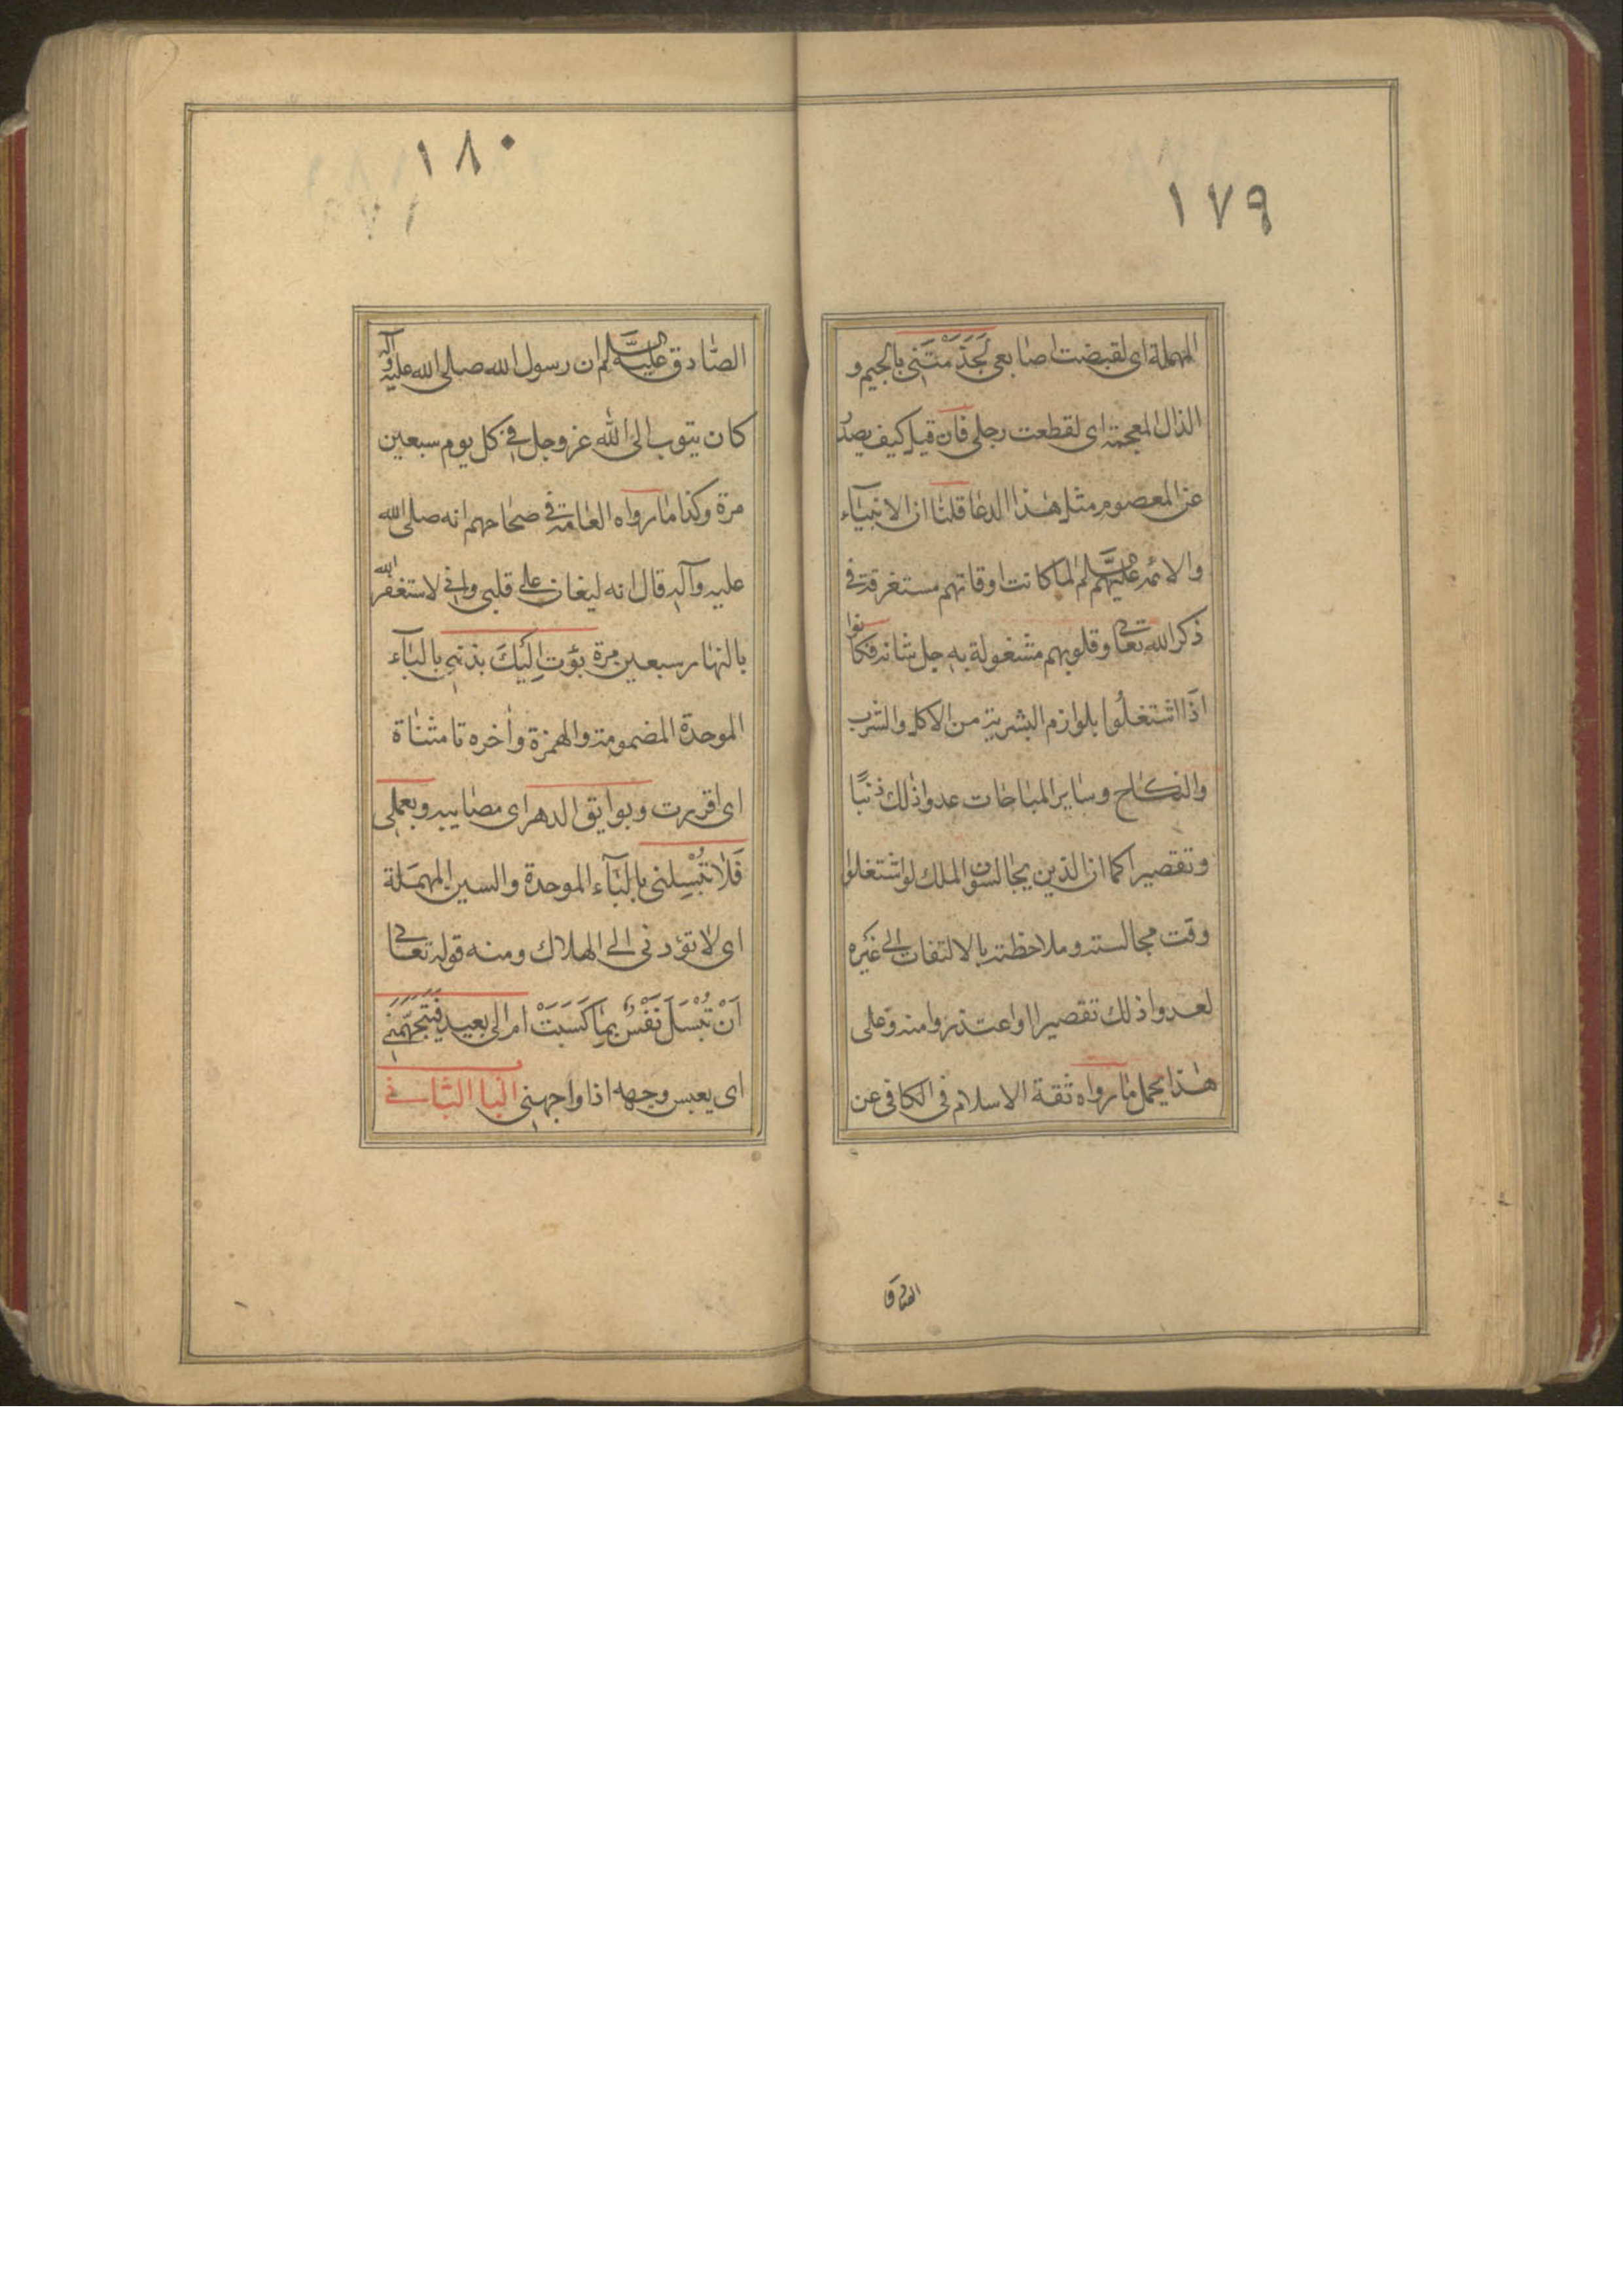 ١٧٩
المهملة اى لقبضت اصابعى لَجَذَمْتَنى بالجيم و
الذال المعجمة اى لقطعت رجلى فان قيل كيف يصدر
عن المعصوم مثل هذا الدعا قلنا ان الانبيآء
والائمه عليهم السلم لما كانت اوقاتهم مستغرقة فى
ذكر الله تعالى وقلوبهم مشغولة به جل شانه فكانوا
اذا اشتغلوا بلوازم البشرية من الاكل والشرب
والنكاح وساير المباحات عدوا ذلك ذنبًا
وتقصيرا كما ان الذين يجالسون الملك لو اشتغلوا
وقت مجالسته وملاحظته بالالتفات الى غيره
لعدوا ذلك تقصيرا واعتذروا منه وعلى
هذا يحمل ما رواه ثقة الاسلام فى الكافى عن
الصادق
١٨٠
الصّادق عليه السلم ان رسول الله صلى الله عليه وآله
كان يتوب الى الله عز وجل فى كل يوم سبعين
مرة وكذا ما رواه العامة فى صحاحهم انه صلى الله
عليه وآله قال انه ليغان على قلبى وانى لاستغفر الله
بالنهار سبعين مرة بؤت اِلَيْكَ بذنبى بالبآء
الموحدة المضمومة والهمزة وأخره تا مثناة
اى اقررت وبوايق الدهر اى مصايبه وبعملى
فَلا تُبْسِلنى بالبآء الموحدة والسين المهملة
اى لا تؤدنى الى الهلاك ومنه قوله تعالى
اَنْ تُبْسَلَ نَفْسٌ بِمَا كَسَبَتْ ام الى بعيد فَيَتَجَهَّمَنى
اى يعبس وجهه اذا واجهنى البا الثانى